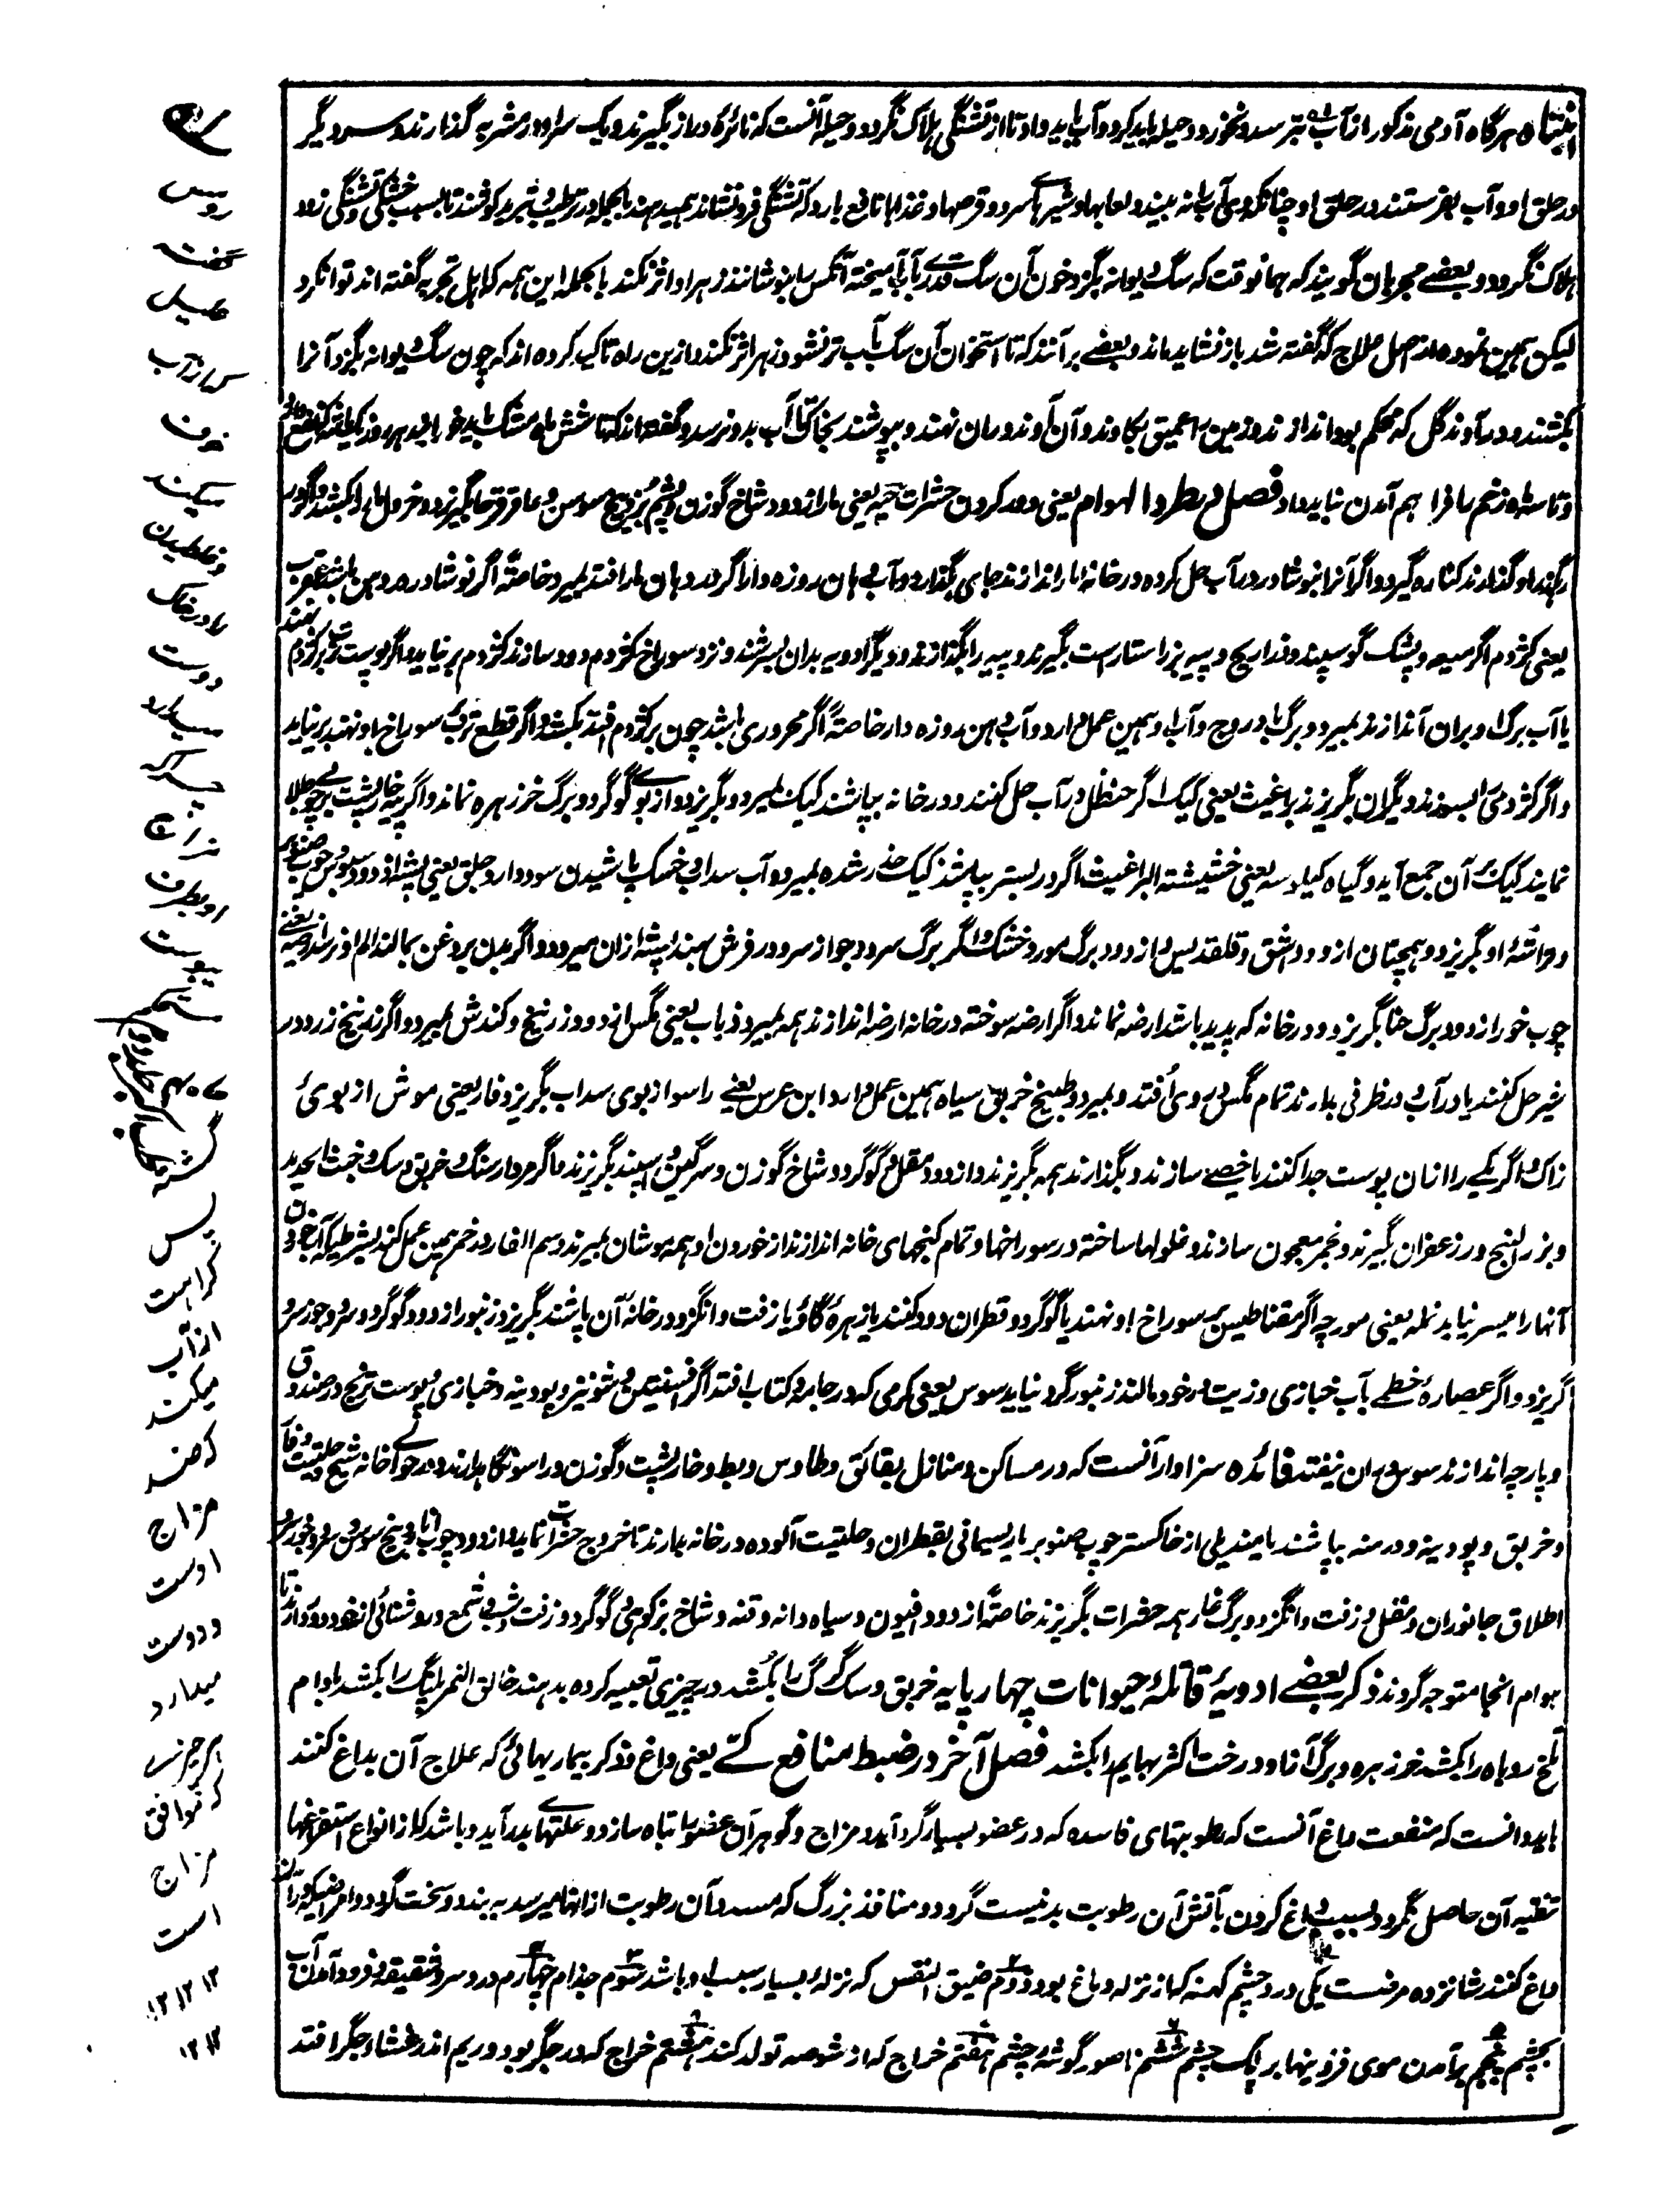 انتباه هرگاه آدمی مذکور از آب بترسد و نخورد و حیله باید کرد و آب باید داد تا از تشنگی هلاک نگردد و حیله آنست که نائزه دراز بگیرند و یک سر او در مشربه گذارند و سر دیگر
در حلق او و آب بفرستند در حلق او چنانکه وی آب را نه بیند و لعابها و شیرهای سرد و قرصها و غذاها نافع بارد که تشنگی فرو نشاند همی دهند بالجمله در ترطیب و تبرید کوشند تا بسبب خشکی و تشنگی زود
هلاک نگردد و بعضی مجربان گویند که همانوقت که سگ دیوانه بگزد خون آن سگ قدری بآب آمیخته آنکس را بنوشانند زهر او اثر نکند بالجمله این همه که اهل تجربه گفته اند توان کرد
لیکن بهمین نموده از اصل علاج که گفته شد باز نشاید ماند و بعضے بر آنند که تا استخوان آن سگ بآب تر نشود زهر اثر نکند و ازین راه تاکید کرده اند که چون سگ دیوانه بگزد آنرا
بکشند و در آوند گل که محکم بود اندازند و زمین را عمیق بکاوند و آن آوند دران نهند و بپوشند بخاک تا آب بدو نرسد و گفته اند که تا شش ماه مشک باید خورانید هر روز
و تا سه ماه زخم را فراهم آمدن نباید داد فصل در طرد الهوام یعنی دور کردن حشرات حیه یعنی مار از دود شاخ گوزن و پشم بز و بیخ سوسن و عاقرقرحا بگریزد و خردل مار را بکشد و اگر در
رهگذر او گذارند کناره گیرد و اگر آنرا بنوشادر در آب حل کرده در خانه مار اندازند جای بگذارد و آب دهان روزه دار اگر در دهان مار افتد بمیرد خاصةً اگر نوشادر در دهن باشد عقرب
یعنی کژدم اگر میعه و پشک گوسپند و زراریح و پیه بز راستا راست بگیرند و پیه را بگذازند و دیگر ادویه بدان بسرشند و نزد سوراخ کژدم دود سازند کژدم بر نیاید و اگر پوست ترب بر کژدم نهند
یا آب برگ او بران اندازند بمیرد و برگ بادروج و آب او همین عمل دارد و آب دهن روزه دار خاصةً اگر محروری باشد چون بر کژدم افتد بکشد و اگر قطع ترب بر سوراخ او نهند بر نیاید
و اگر کژدمی را بسوزند دیگران بگریزند براغیث یعنی کیک اگر حنظل در آب حل کنند و در خانه بپاشند کیک بمیرد و بگریزد و از بوی گوگرد و برگ خرزهره نماند و اگر پیه خارپشت بر چوبی طلا
نمایند کیک بر آن جمع آید و گیاه کیلوسه یعنی حشیشة البراغیث اگر در بستر بپاشند کیک خدر شده بمیرد و آب سداب و خسک پاشیدن سود دارد بق یعنی پشه از دود سبوس چوب صنوبر
و تراشهٔ او بگریزد و همچنان از دود اشق و قلقدیس و از دود برگ مورد خشک و اگر برگ سرو و جواز سرو در فرش نهند پشه ازان میرود و اگر بدن بروغن بمالند الم او نرساند ارضه یعنی
چوب خور از دود برگ حنا بگریزد و در خانه که هدهد باشد ارضه نماند و اگر ارضه سوخته در خانه ارضه اندازند همه بمیرد ذباب یعنی مگس از دود زرنیخ و کندش بمیرد و اگر زرنیخ زرد در
شیر حل کنند یا در آب و در ظرفی بدارند تمام مگس بر وی افتد و بمیرد و طبیخ خربق سیاه همین عمل دارد ابن عرس یعنے راسو از بوی سداب بگریزد فار یعنی موش از بوئ
زاک و اگر یکے را ازان پوست جدا کنند یا خصی سازند و بگذارند همه بگریزند و از دود مقل و گوگرد و شاخ گوزن و سرگین اسپ بگریزند و اگر مردارسنگ و خربق و سک و خبث الحدید
و بزر البنج و زعفران بگیرند و بخمر معجون سازند و غلولها ساخته در سوراخها و تمام کنجهای خانه اندازند از خوردن او همه موشان بمیرند و سم الفار در خمر همین عمل کند بشرطیکه آب خوردن
آنها را میسر نیاید نمله یعنی مورچه اگر مقناطیس بر سوراخ او نهند یا گوگرد و قطران دود کنند یا زهرهٔ گاو یا زفت و انگزد در خانهٔ آن پاشند بگریزد زنبور از دود گوگرد و سرو جوز سرو
گریزد و اگر عصارهٔ خطمے بآب خبازی و زیت بر خود مالند زنبور گرد نیاید سوس یعنی کرمی که در جامه و کتاب افتد اگر افسنتین و شونیز و پودینه و خبازی و پوست ترنج در صندوق
و پارچه اندازند سوس دران نیفتد فائده سزاوار آنست که در مساکن و منازل لقائق و طاوس و بط و خارپشت و گوزن و راسو نگاه دارند و در حوالی خانه شیح و حلتیت و فار
و خربق و پودینه و درمنه بپاشند یا مندیلی از خاکستر چوب صنوبر یا ریسمانی بقطران و حلتیت آلوده در خانه بدارند تا خروج حشرات نماید و از دود چوب انار و بیخ سوسن و سرو و جوز سرو
اطلاق جانوران و مقل و زفت و انگزد و برگ غار همه حشرات بگریزند خاصةً از دود افیون و سیاه دانه و قنه و شاخ بز کوهی و گوگرد و زفت و شب شمع و روشنائی از خود دور دارند تا
هوام انجا متوجه گردند ذکر بعضے ادویهٔ قاتلهٔ حیوانات چهارپایه خربق و سک گرگ را بکشد در چیزی تعبیه کرده بدهند خانق النمر پلنگ را بکشد بادام
تلخ روباه را بکشد خرزهره و برگ آزاد درخت اکثر بهایم را بکشد فصل آخر در ضبط منافع کے یعنی داغ و ذکر بیماریهائی که علاج آن بداغ کنند
باید دانست که منفعت داغ آنست که رطوبتهای فاسده که در عضو بسیار گرد آید و مزاج و گوهر آن عضو را تباه سازد و علتها پدید آید و باشد که از انواع استفراغها
تنقیه آن حاصل نگردد بسبب داغ کردن بآتش آن رطوبت بد نیست گردد و منافذ بزرگ که مسد دآن رطوبت از انها میرسد به بندد و سخت گردد و امراضیکه در آن
داغ کنند شانزده مرضست یکی درد چشم کهنه که از نزله دماغ بود دوم ضیق النفس که نزله بسیار سبب او باشد سوم جذام چهارم درد سر و شقیقه و فرود آمدن آب
بچشم پنجم برآمدن موی فزونیها بر پلک چشم ششم ناصور گوشهٔ چشم هفتم خراج که از شوصه تولد کند هشتم خراج که در جگر بود و ریم اندر غشاء جگر افتد
رویس
گفت
میکند
راورخاک
دوست
پس
کراهت
از آب
میکند
که ضد
مزاج
اوست
و دوست
میدارد
هر چیزے
که موافق
مزاج
است
۱۲ ۱۲ ۱۲
۱۲ ۱۲